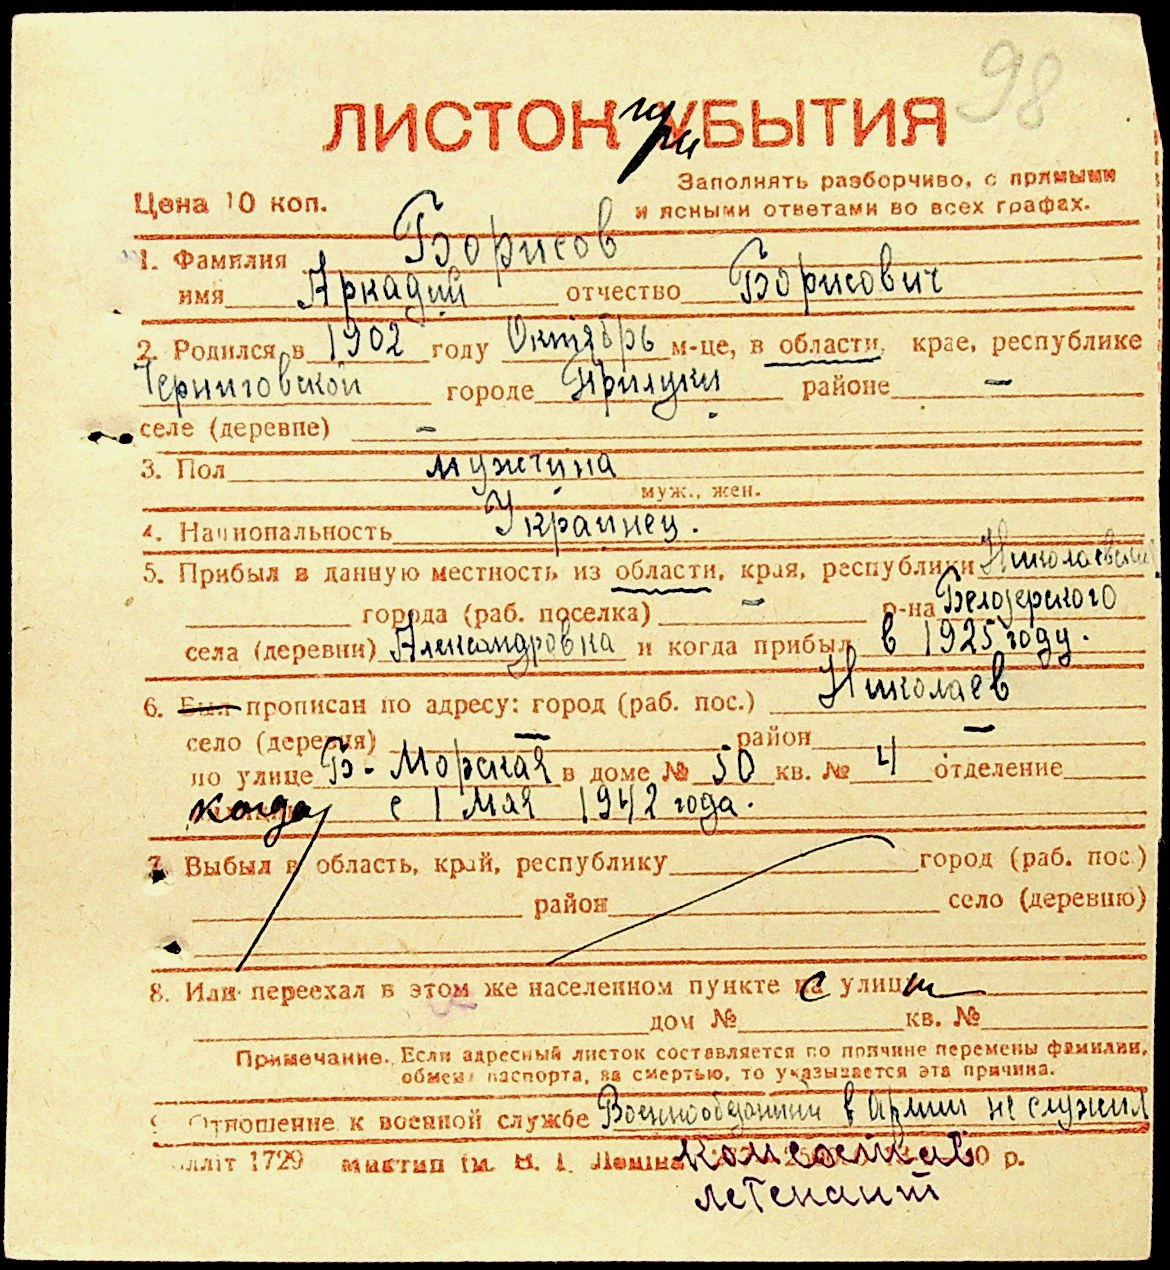 98
ЛИСТОК при УБЫТИЯ
Цена 10 коп.
Заполнять разборчиво, с прямыми
и ясными ответами во всех графах.
1. Фамилия Борисов
имя Аркадий отчество Борисович
2. Родился в 1902 году Октябрь м-це, в области, крае, республике
Черниговской городе Прилуки районе —
селе (деревне) —
3. Пол мужчина
муж., жен.
4. Национальность Украинец.
5. Прибыл в данную местность из области, края, республики Николаевский
города (раб. поселка) — р-на Белозерского
села (деревни) Александровка и когда прибыл в 1925 году.
6. Был прописан по адресу: город (раб. пос.) Николаев
село (деревня) — район —
по улице Б-Морская в доме № 50 кв. № 4 отделение
когда с 1 Мая 1942 года.
7. Выбыл в область, край, республику город (раб. пос.)
район село (деревню)
8. Или переехал в этом же населенном пункте с улицы
дом № кв. №
Примечание. Если адресный листок составляется по причине перемены фамилии,
обмена паспорта, за смертью, то указывается эта причина.
Отношение к военной службе Военнообязанный в армии не служил
лліт 1729 им. Леніна комсостав 0 р.
летенант